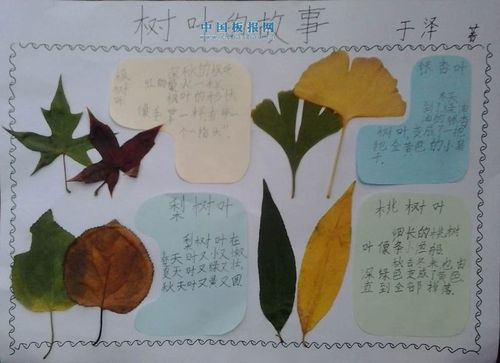 树叶的故事
于泽 著
中国板报网
枫树叶
深秋的枫
红的像火一样
枫叶的形状
像手
个"指头"
银杏叶
秋天
到了绿油
油的银杏
树叶变成了一把
把金黄色的小扇
子。
梨树叶
梨树叶在
春天叶又小又嫩
夏天叶又绿又壮
秋天叶又黄又圆
桃树叶
细长的桃树
叶像条小
秋去冬来它由
深绿色变成了黄色
直到全部掉落。